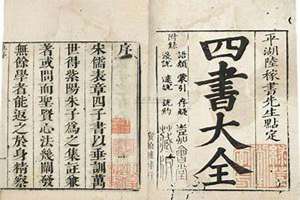 平湖陸稼書先生點定
四書大全
附
語類 蒙引 存疑
淺說 達說 說約
序
宋儒表章四子書以垂訓萬
世得紫陽朱子為之集註兼
著或問而聖賢心法幾闡發
無餘學者能返之於身精察